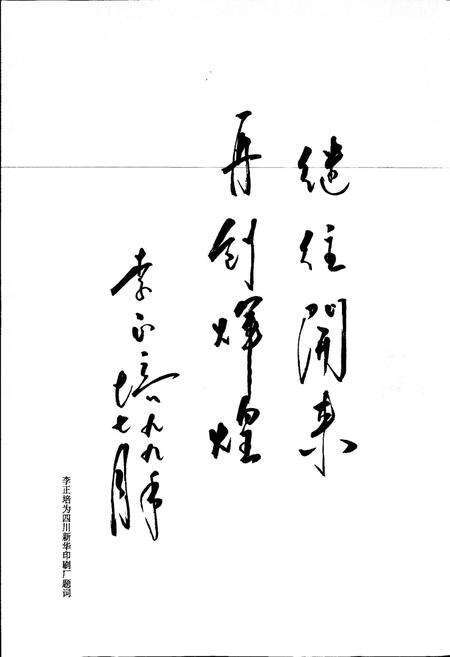 继往開来
再创辉煌
李正培
七月
李正培为四川新华印刷厂题词